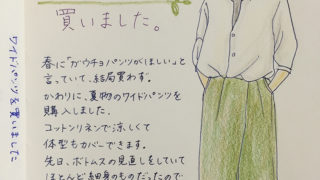 買いました。
春に"ガウチョパンツがほしい"と
言っていて、結局買わず。
かわりに、夏物のワイドパンツを
購入しました。
コットンリネンで涼しくて
体型もカバーできます。
先日、ボトムスの見直しをしていて
ほとんど細身のものだったので
ワイドパンツを買いました